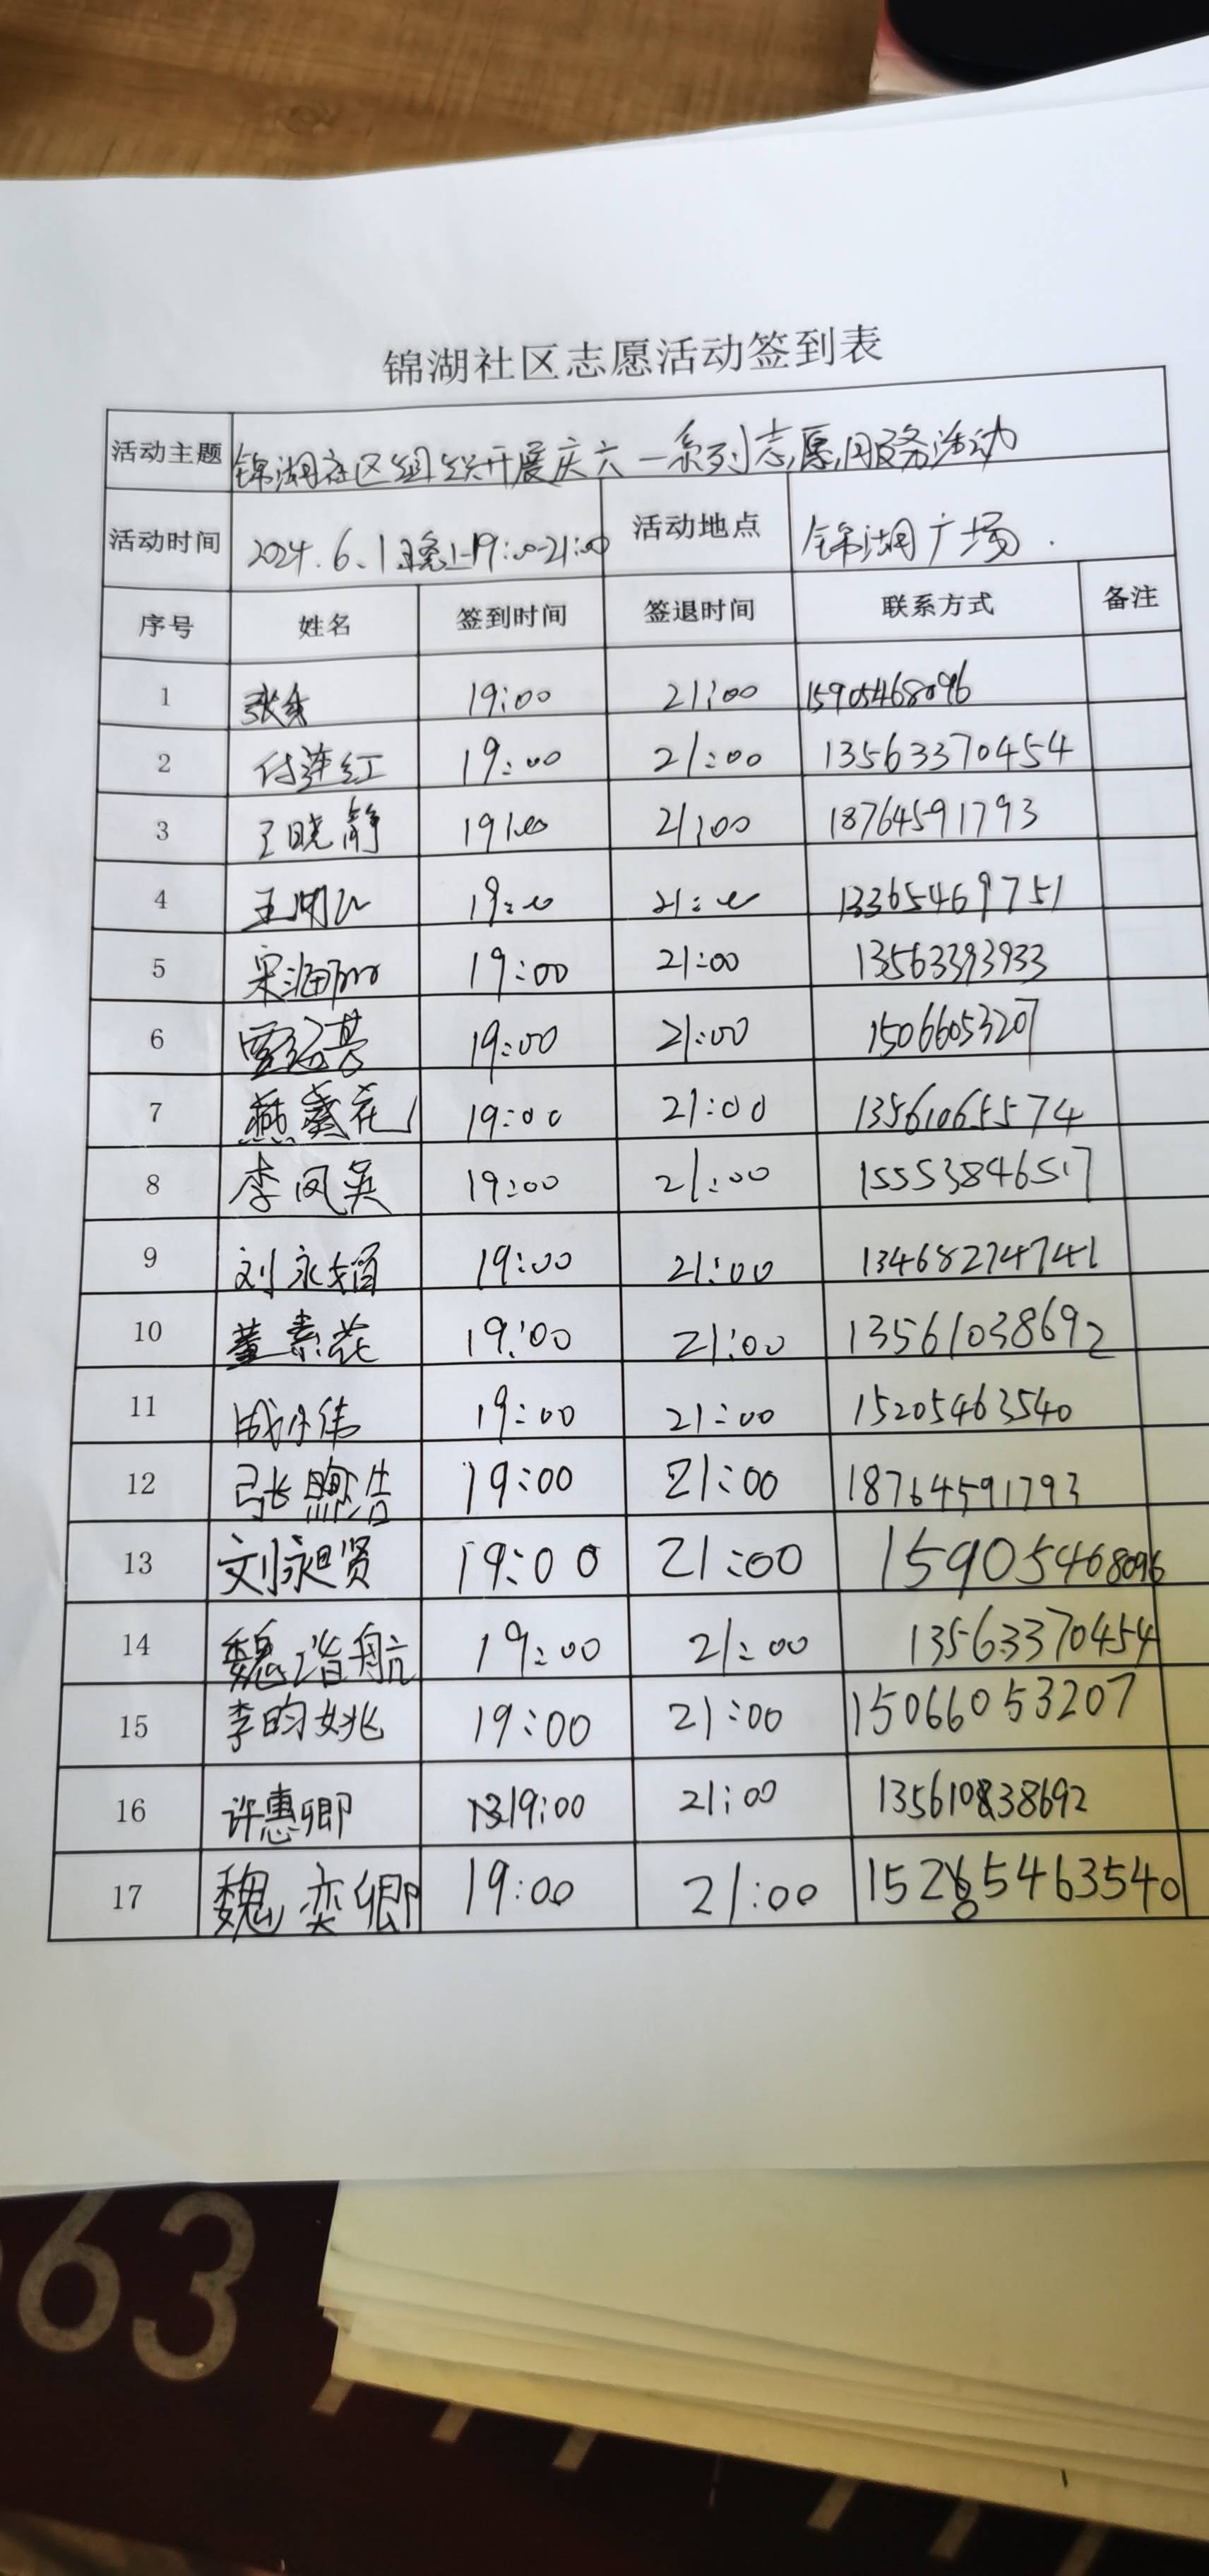 锦湖社区志愿活动签到表
活动主题 锦湖社区组织开展庆六一系列志愿服务活动
活动时间 2024.6.1日晚上19:00-21:00 活动地点 锦湖广场.
序号 姓名 签到时间 签退时间 联系方式 备注
1 张 19:00 21:00 15905468096
2 付莲红 19:00 21:00 13563370454
3 王晓静 19:00 21:00 18764591793
4 王 19:00 21:00 13365469751
5 宋海 19:00 21:00 13563393933
6 贾 19:00 21:00 15066053207
7 燕 花 19:00 21:00 13561065574
8 李凤英 19:00 21:00 15553846517
9 刘永 19:00 21:00 13468274741
10 董素花 19:00 21:00 13561038692
11 成小伟 19:00 21:00 15205463540
12 张煦浩 19:00 21:00 18764591793
13 刘昶贤 19:00 21:00 15905468096
14 魏谐航 19:00 21:00 13563370454
15 李昀姚 19:00 21:00 15066053207
16 许惠卿 19:00 21:00 13561038692
17 魏奕卿 19:00 21:00 15205463540
63